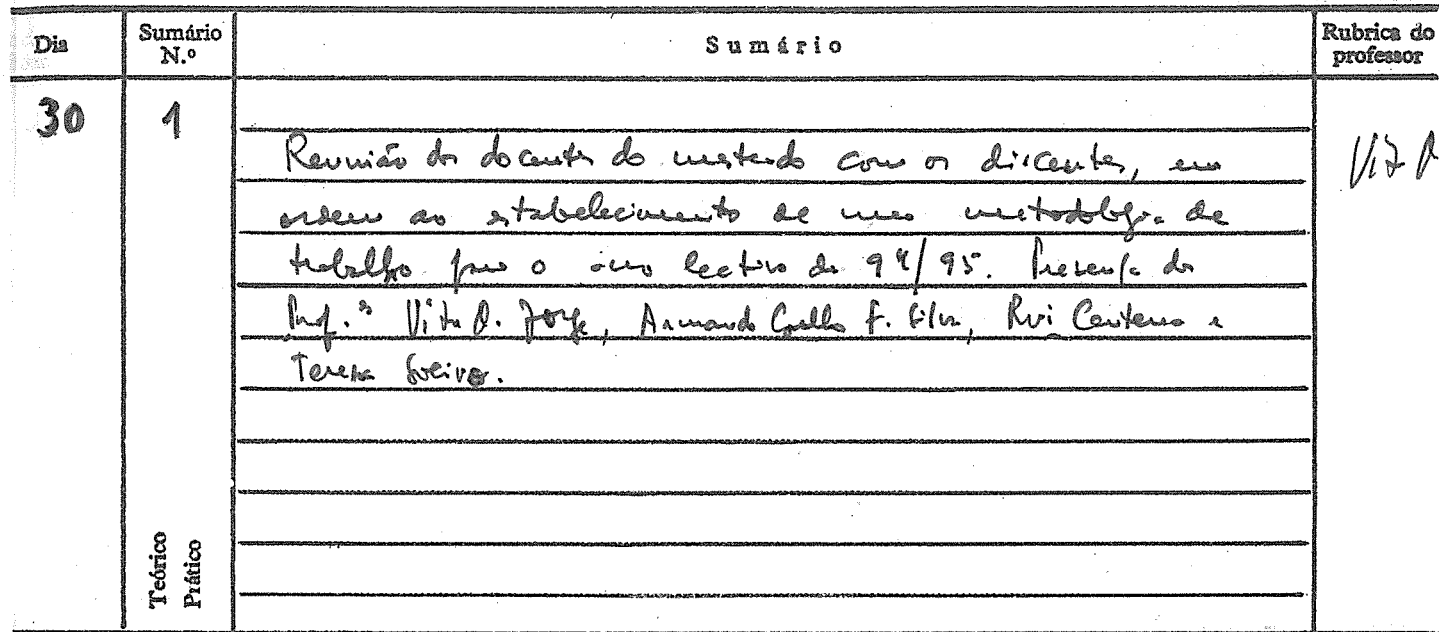 Dia
Sumário
N.º
Sumário
Rubrica do
professor
30
1
Reunião dos docentes do mestrado com os discentes, em
ordem ao estabelecimento de uma metodologia de
trabalho para o ano lectivo de 94/95. Presença dos
Prof.s Vítor O. Jorge, Armando Coelho F. Silva, Rui Centeno e
Teresa Soeiro.
Teórico
Prático